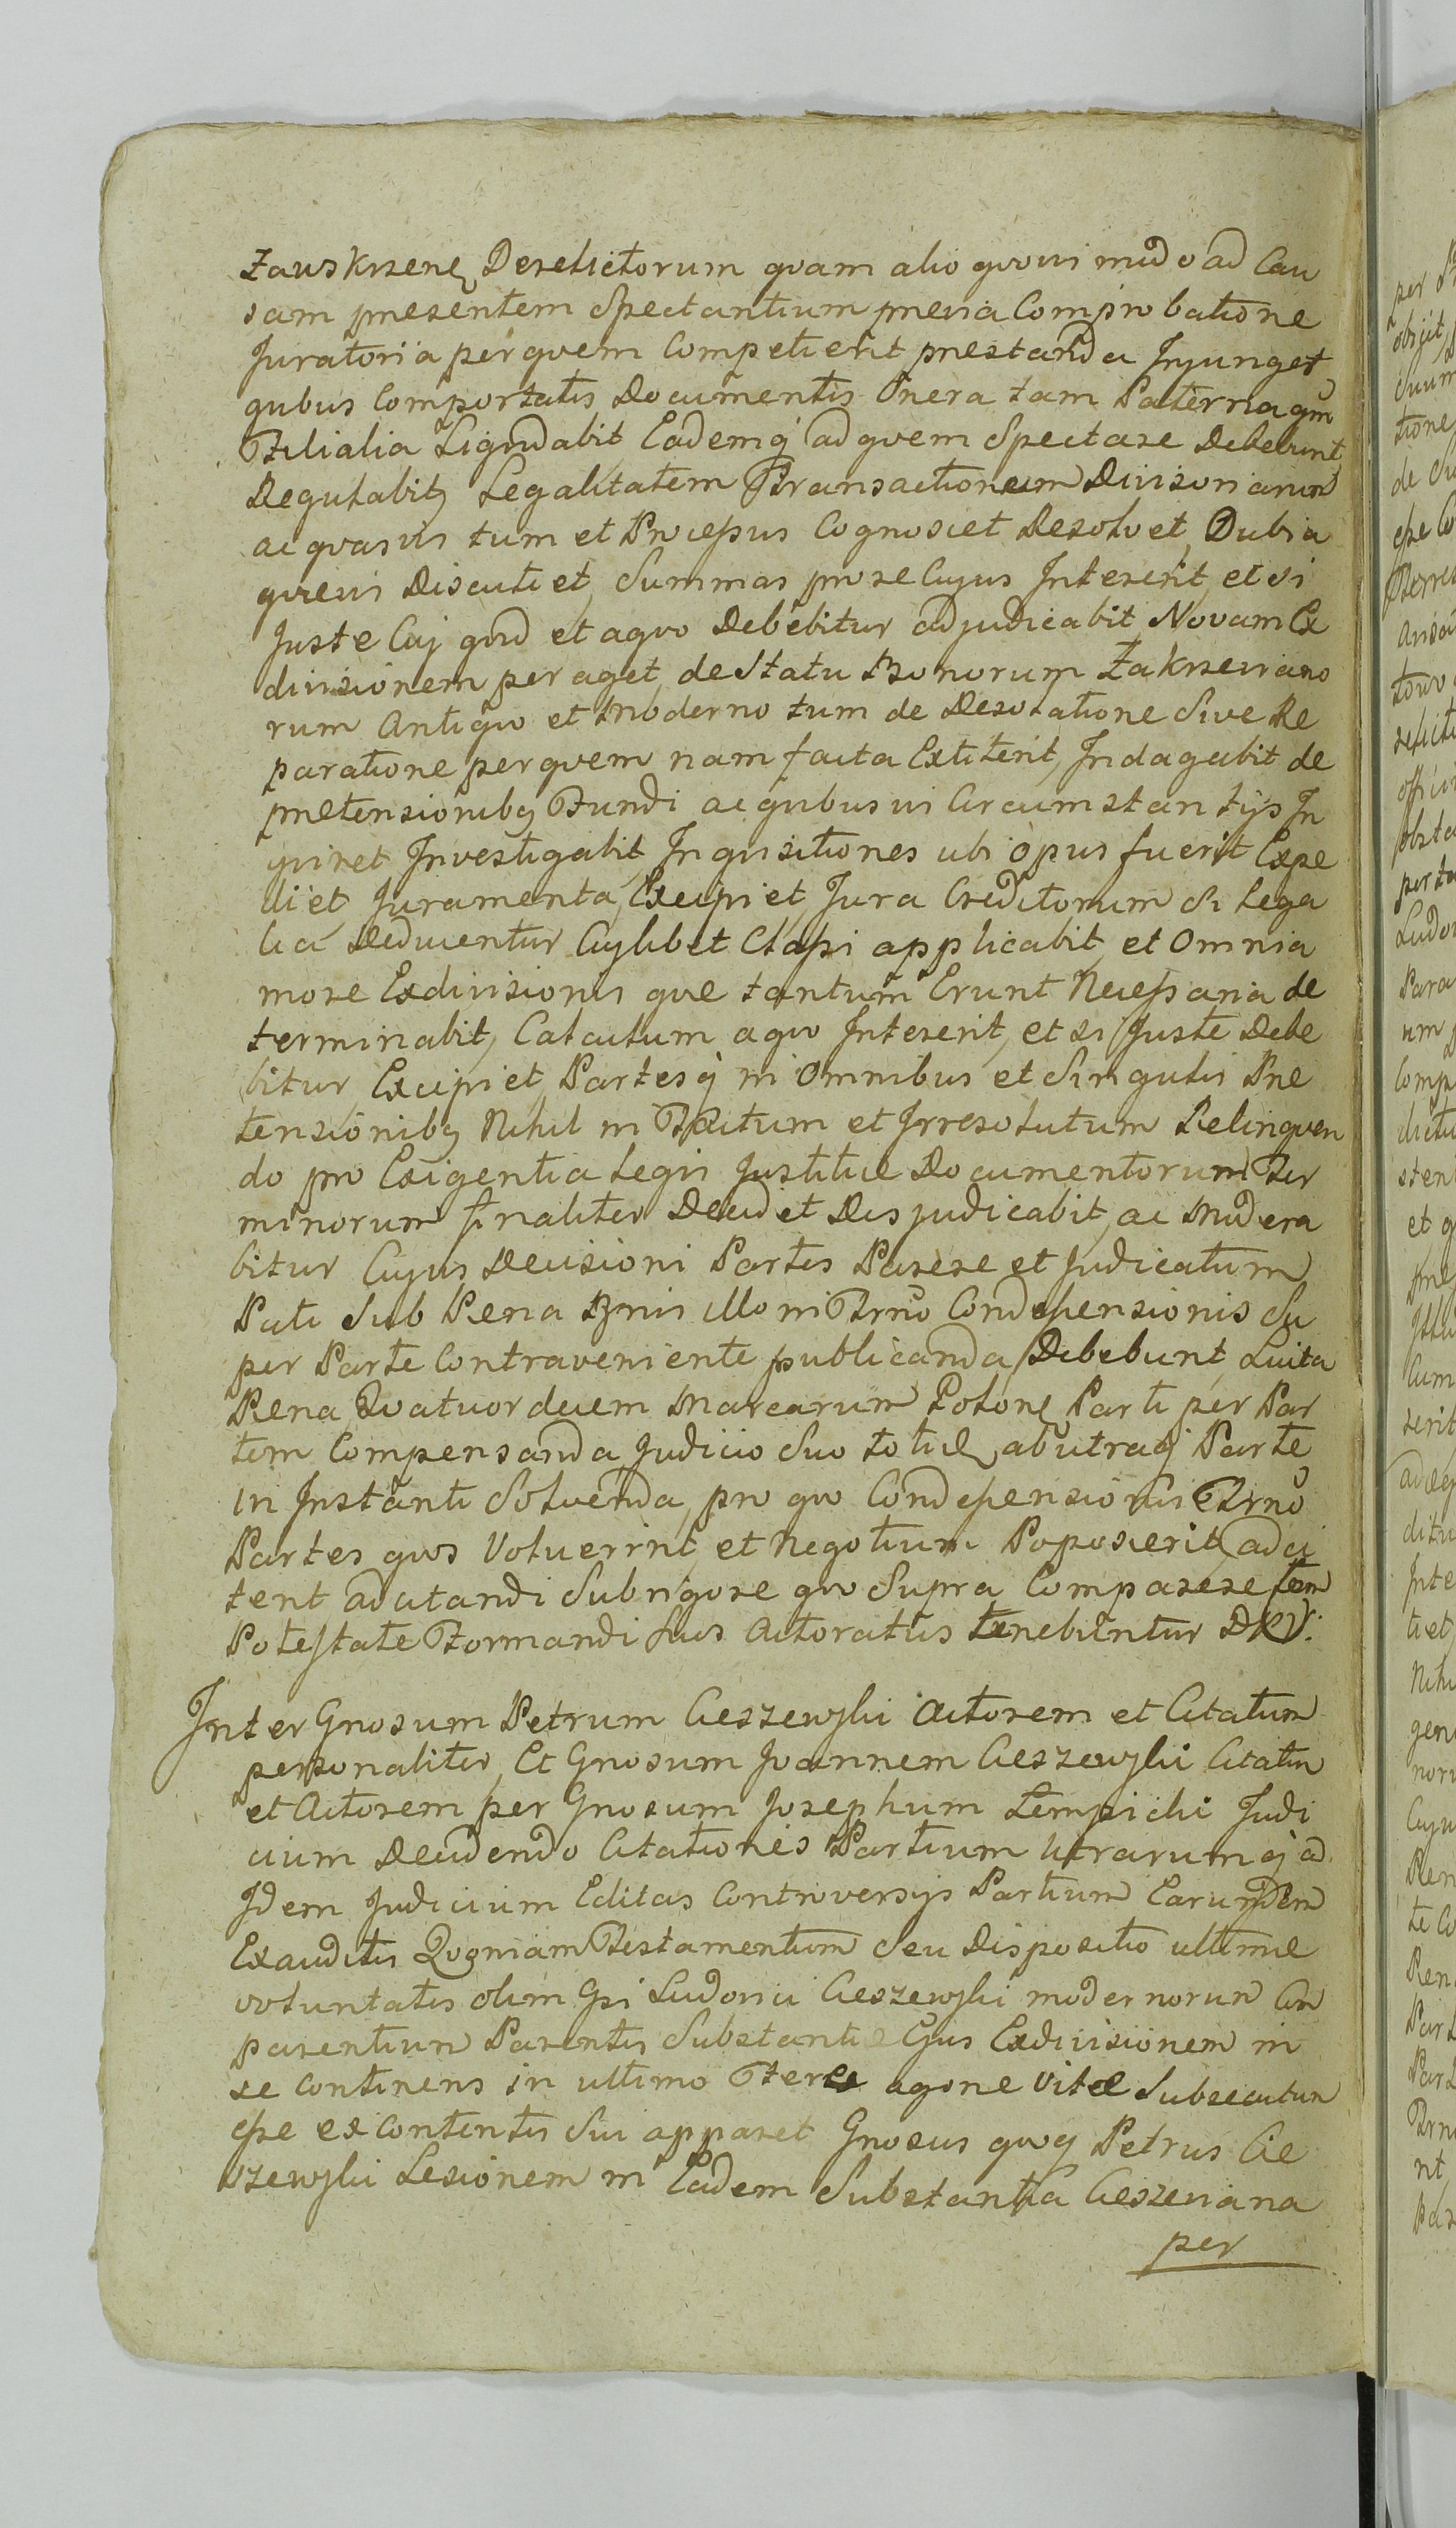 Zawskrzenę Derelictorum qvam alio qvovi modo ad Cau
sam presentem Spectantium previa Comprobatione
Juratoria per qvem Competierit prestanda Injunget
qvibus Comportatis Documentis Onera tam Paterna qm
Filialia Liqvidabit Eademq ad qvem Spectare Debebunt
Regulabitq Legalitatem Transactionum Divisoriarum
ac qvasvis tum et Processus Cognosciet Resolvet, Dubia
qvevis Discutiet, Summas prore Cujus Intererit, et si
Juste Cuj qvid et aqvo Debebitur adjudicabit Novam Ex
divisionem peraget, de Statu Bonorum Zakrzeviano
rum Antiqvo et Moderno tum de Desolatione Sive Re
paratione per qvem nam facta Extiterit, Indagabit de
pretensionibq Fundi ac qvibusvis Circumstantijs In
qviret Investigabit, Inqvisitiones ubi opus fuerit Expe
diet Juramenta, Excipiet, Jura Creditorum Si Lega
lia Deducentur Cuylibet Classi applicabit, et Omnia
more Exdivisionis qve tantum Erunt Necessaria de
terminabit, Calculum a qvo Intererit, et si Juste Debe
bitur Excipiet, Partesq in Omnibus et Singulis Pre
tensionibq Nihil in Factum et Irresolutum Relinqven
do pro Exigentia Legis Justitiæ Documentorum Ter
minorum finaliter Decidet Disjudicabit, ac Modera
bitur Cujus Decisioni Partes Parere et Judicatum
Pati Sub Pena Bnis illo in Trno Condessensionis Su
per Parte Contraveniente publicanda, Debebunt, Luita
Pena Qvatuordecem Marcarum Polonę Parti per Par
tem Compensanda Judicio Suo totiæ, ab utraq Parte
in Instanti Solvenda, pro qvo Condessensionis Trno
Partes qvos Voluerint et Negotium Poposcerit adci
tent adcitandi Sub rigore qvo Supra Comparere cum
Potestate Formandi Suis Actoratus tenebuntur DRV:
Inter Gnosum Petrum Cieszewski Actorem et Citatum
personaliter, Et Gnosum Joannem Cieszewski Citatum
et Actorem per Gnosum Josephum Lempicki Judi
cium Decidendo Citationes Partium Utrarumq ad
Idem Judicium Editas Controversijs Partium Earundem
Exauditis Qvoniam Testamentum Seu Dispositio ultimæ
voluntatis olim Gsi Ludovici Cieszewski modernorum Com
parentium Parentis Substantiæ Ejus Exdivisionem in
se Continens in ultimo Fere agone Vitæ Subsecutum
esse ex Contentis Sui apparet Gnosus qvoq Petrus Cie
szewski Lesionem in Eadem Substantia Cieszeviana
per